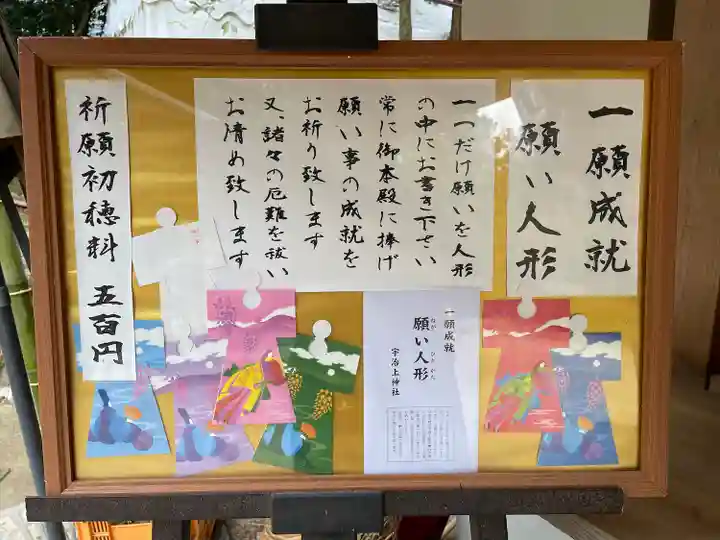 一願成就
願い人形
一つだけ願いを人形
の中にお書き下さい
常に御本殿に捧げ
願い事の成就を
お祈り致します
又、諸々の厄難を祓い
お清め致します
祈願初穂料 五百円
一願成就
願い人形
ねが ひとがた
宇治上神社